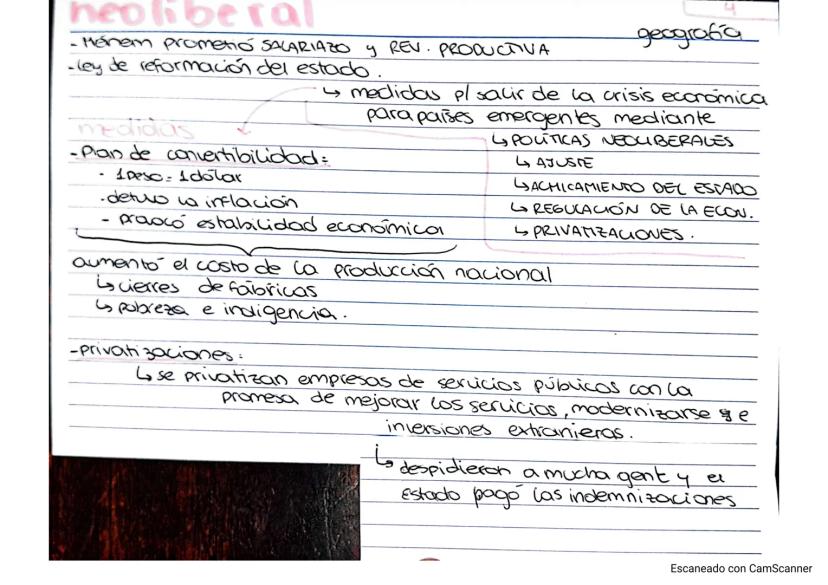 neoliberal
4
geografía
- Ménem prometió SALARIAZO y REV. PRODUCTIVA
- ley de reformación del estado.
↳ medidas p/ salir de la crisis económica
para países emergentes mediante
↳ POLÍTICAS NEOLIBERALES
↳ AJUSTE
↳ ACHICAMIENTO DEL ESTADO
↳ REGULACIÓN DE LA ECON.
↳ PRIVATIZACIONES.
medidas
- Plan de convertibilidad:
· 1 peso = 1 dólar
· detuvo la inflación
- provocó estabilidad económica
aumentó el costo de la producción nacional
↳ cierres de fábricas
↳ pobreza e indigencia.
- privatizaciones:
↳ se privatizan empresas de servicios públicos con la
promesa de mejorar los servicios, modernizarse e
inversiones extranjeras.
↳ despidieron a mucha gent y el
Estado pagó las indemnizaciones
Escaneado con CamScanner